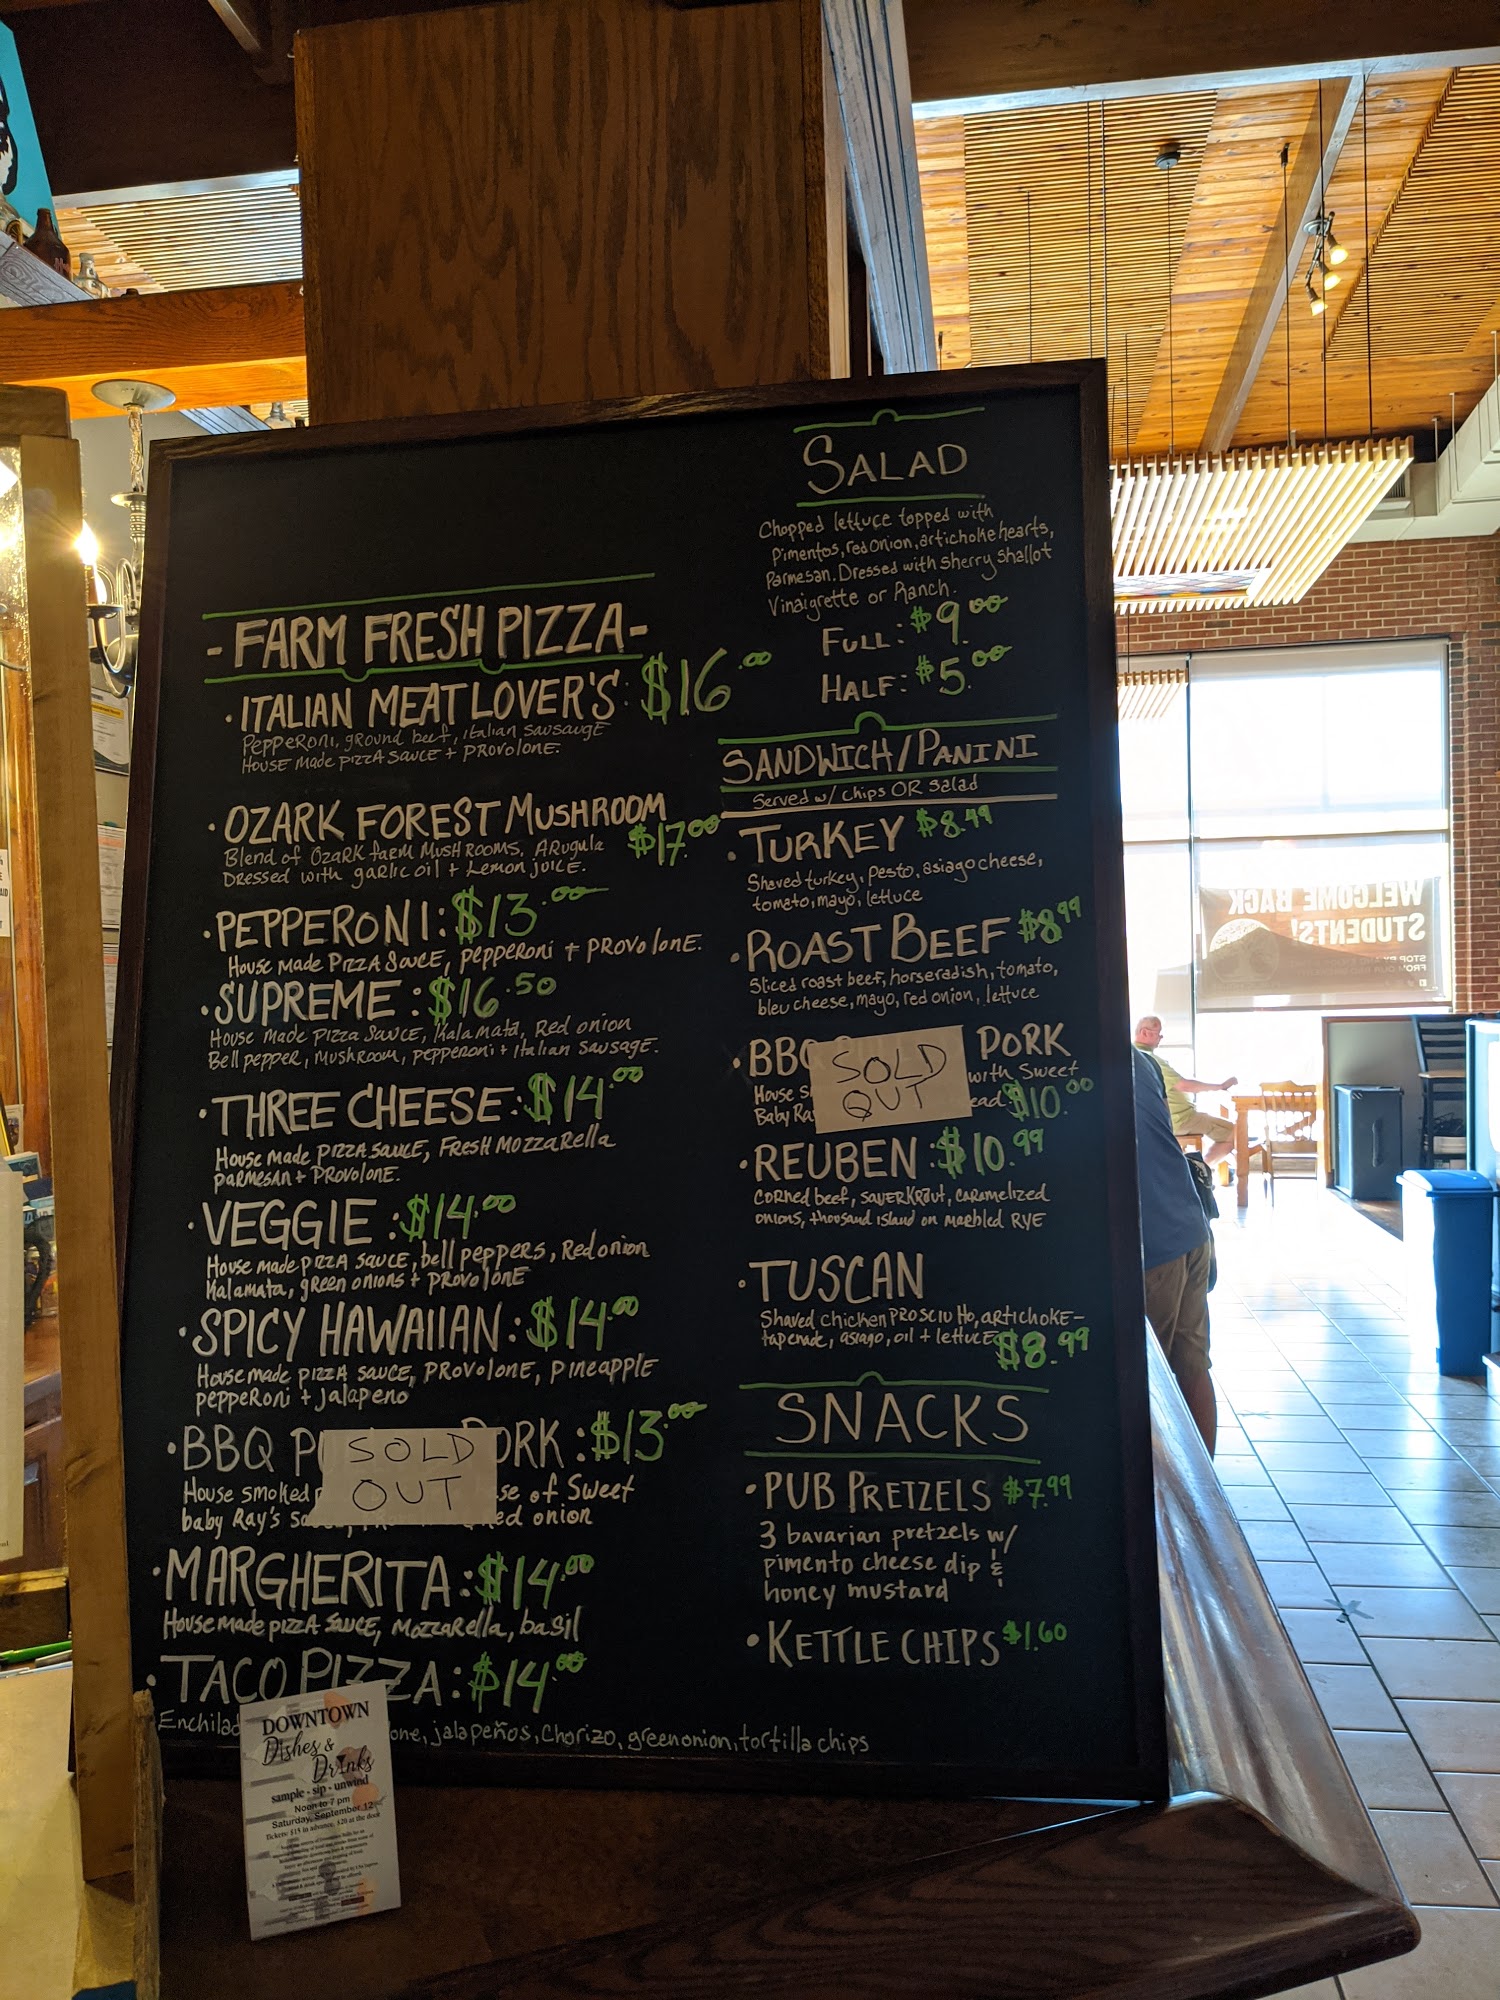 - FARM FRESH PIZZA -
· ITALIAN MEAT LOVER'S: $16.00
Pepperoni, ground beef, italian sausauge
House made pizza sauce + provolone.
· OZARK FOREST MUSHROOM
$17.00
Blend of Ozark farm mushrooms. Arugula
Dressed with garlic oil + Lemon juice.
· PEPPERONI: $13.00
House made pizza sauce, pepperoni + provolone.
· SUPREME: $16.50
House made pizza sauce, Kalamata, Red onion
Bell pepper, mushroom, pepperoni + italian sausage.
· THREE CHEESE: $14.00
House made pizza sauce, Fresh mozzarella
parmesan + provolone.
· VEGGIE: $14.00
House made pizza sauce, bell peppers, Red onion
Kalamata, green onions + provolone
· SPICY HAWAIIAN: $14.00
House made pizza sauce, provolone, pineapple
pepperoni + jalapeno
· BBQ P ORK: $13.00
SOLD
OUT
House smoked se of Sweet
baby Ray's red onion
· MARGHERITA: $14.00
House made pizza sauce, mozzarella, basil
· TACO PIZZA: $14.00
Enchilad lone, jalapeños, Chorizo, green onion, tortilla chips
SALAD
Chopped lettuce topped with
pimentos, red onion, artichoke hearts,
Parmesan. Dressed with sherry shallot
Vinaigrette or Ranch.
FULL: $9.00
HALF: $5.00
SANDWICH/PANINI
Served w/ chips OR salad
· TURKEY $8.49
Shaved turkey, pesto, asiago cheese,
tomato, mayo, lettuce
· ROAST BEEF $8.99
Sliced roast beef, horseradish, tomato,
bleu cheese, mayo, red onion, lettuce
· BBQ PORK
SOLD
OUT
House s with Sweet
Baby Ra ead $10.00
· REUBEN: $10.99
corned beef, sauerkraut, caramelized
onions, thousand island on marbled rye
· TUSCAN
Shaved chicken prosciutto, artichoke-
tapenade, asiago, oil + lettuce $8.99
SNACKS
· PUB PRETZELS $7.99
3 bavarian pretzels w/
pimento cheese dip &
honey mustard
· KETTLE CHIPS $1.60
DOWNTOWN
Dishes &
Drinks
sample - sip - unwind
Noon to 7 pm
Saturday, September 12
Tickets: $15 in advance, $20 at the door
WELCOME BACK
STUDENTS!